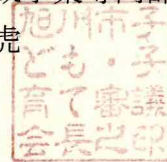 虎
旭川市子
ども・子
育て審議
会長之印